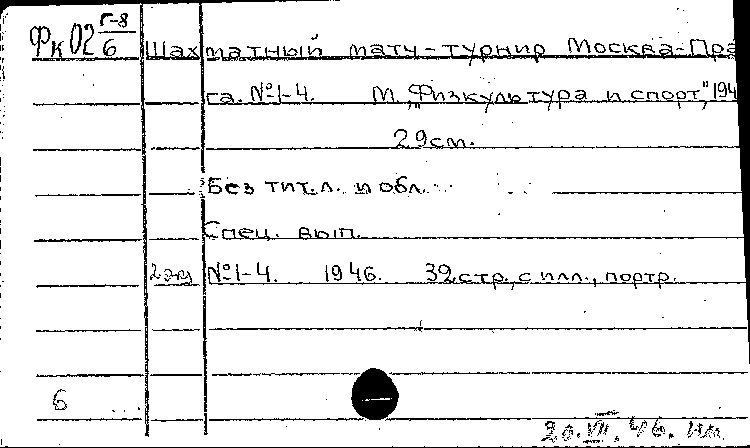 Фк 02 Г-8/6
Шахматный матч-турнир Москва-Пра
га. №1-4. М. „Физкультура и спорт," 194
29 см.
Без тит.л. и обл.
Спец. вып.
2 экз №1-4. 1946. 32 стр., с илл., портр.
6
20.VII.46.